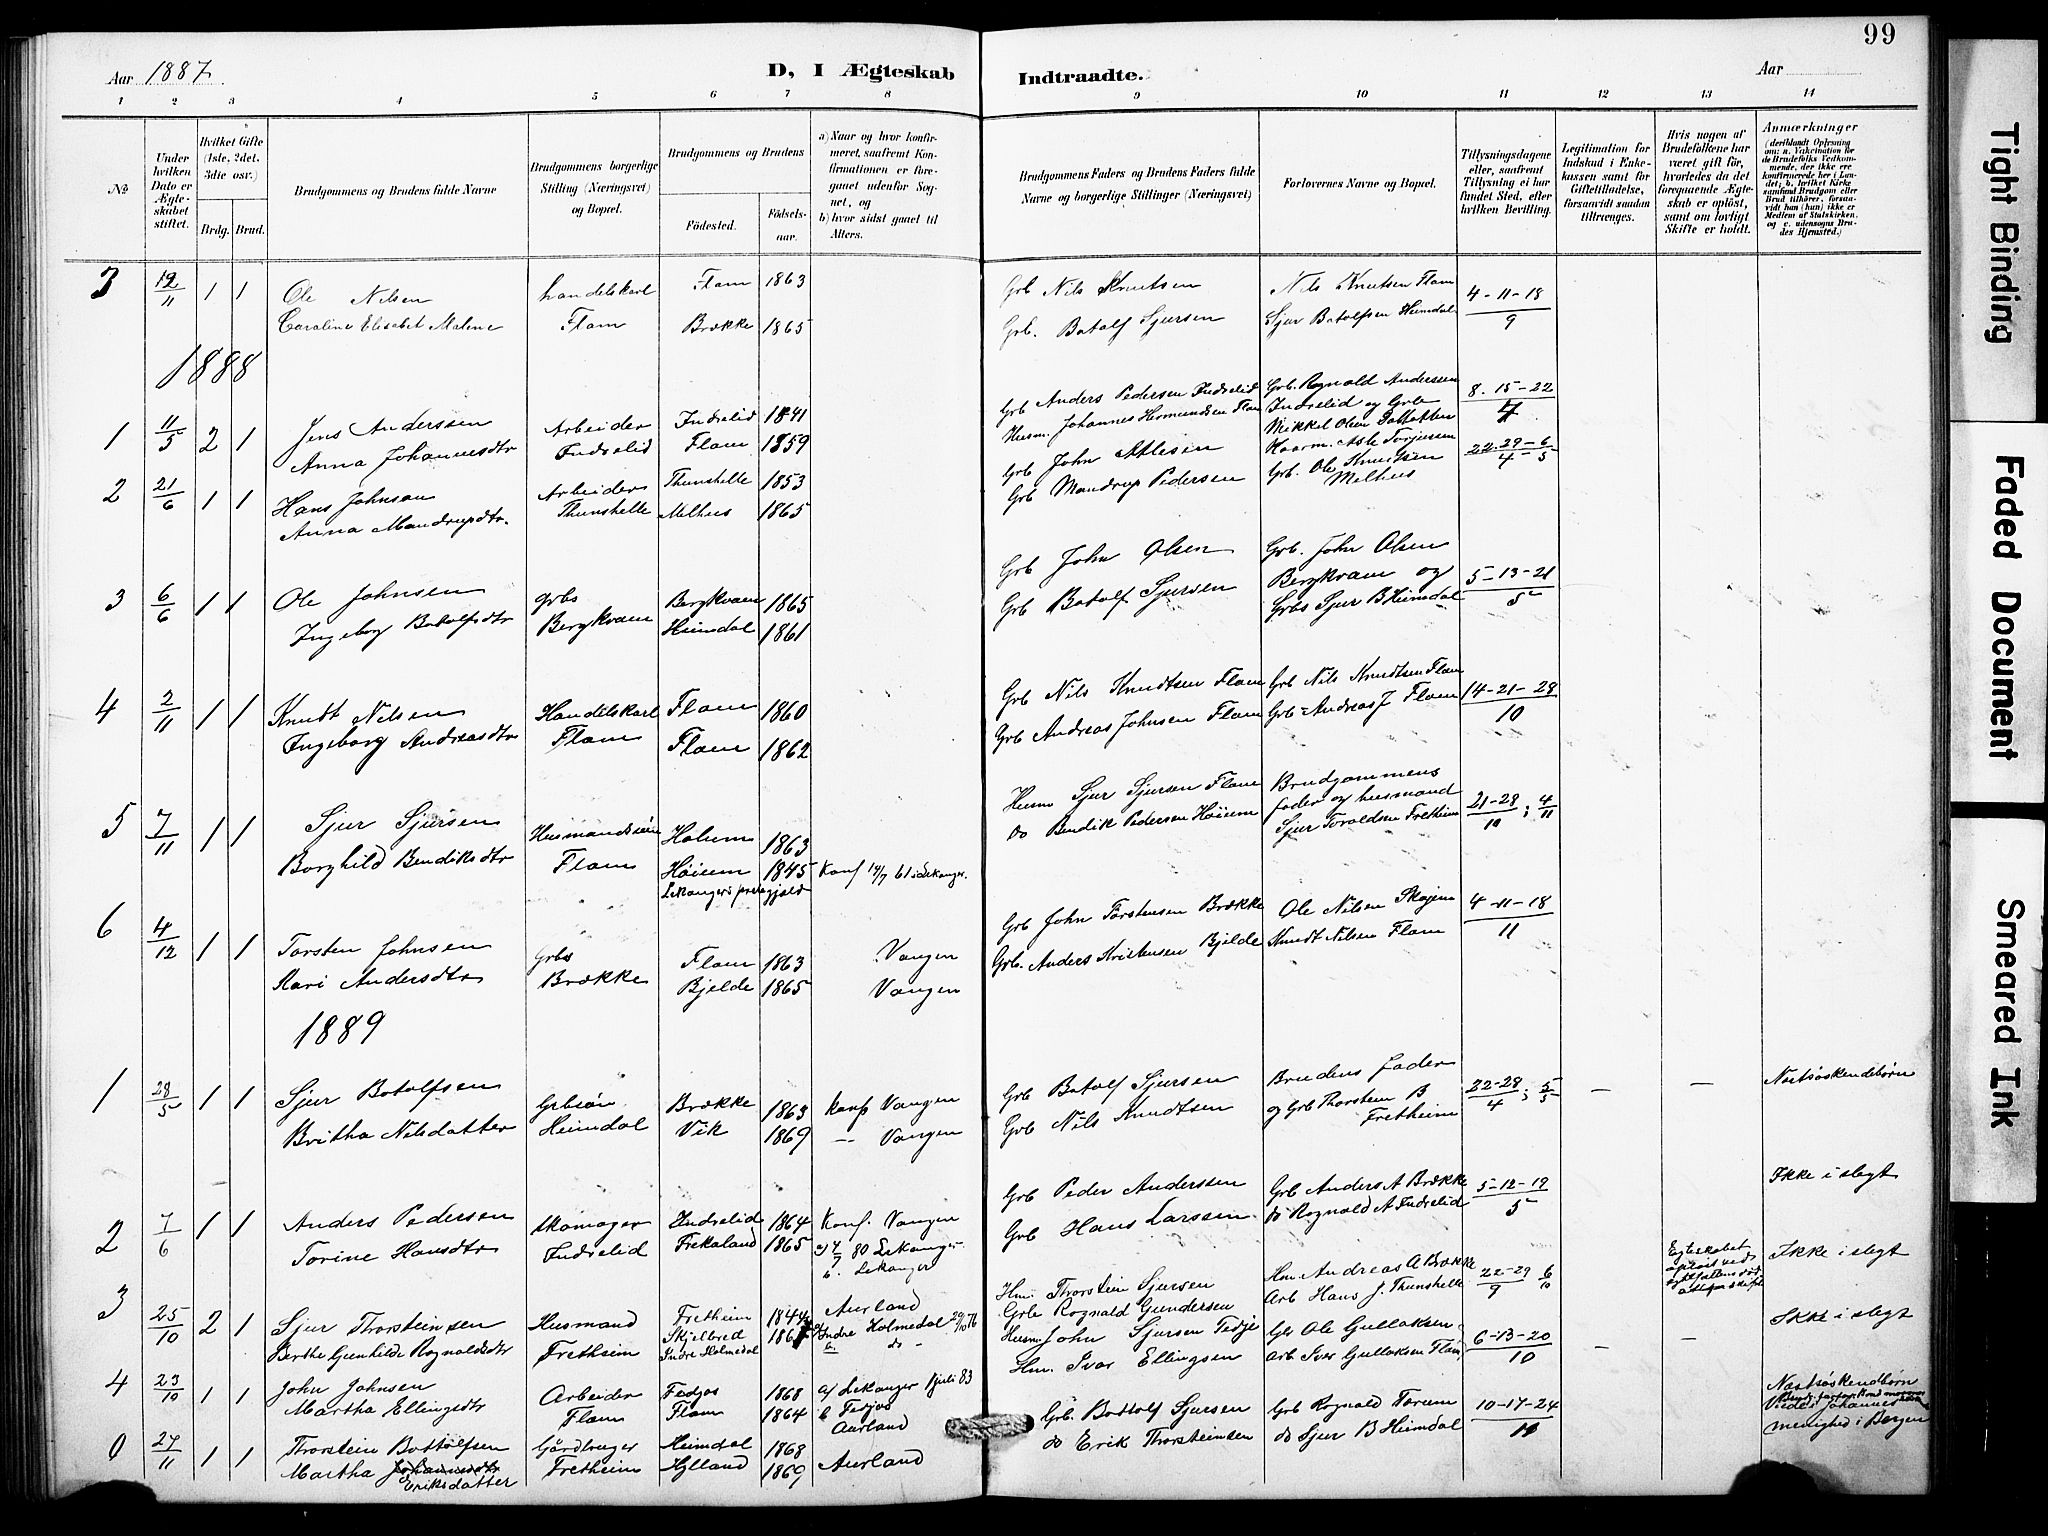 99
Aar 1887
D, I Ægteskab Indtraadte.
Aar
1 2 3 4 5 6 7 8 9 10 11 12 13 14
№
Under hvilken Dato er Ægteskabet stiftet.
Hvilket Gifte (1ste, 2det, 3die osv.)
Brdg. Brud.
Brudgommens og Brudens fulde Navne
Brudgommens borgerlige Stilling (Næringsvei) og Bopæl.
Brudgommens og Brudens
Fødested.
Fødselsaar.
a) Naar og hvor konfirmeret, saafremt Konfirmationen er foregaaet udenfor Sognet, og
b) hvor sidst gaaet til Alters.
Brudgommens Faders og Brudens Faders fulde Navne og borgerlige Stillinger (Næringsvei)
Forlovernes Navne og Bopæl.
Tillysningsdagene eller, saafremt Tillysning ei har fundet Sted, efter hvilken Bevilling.
Legitimation for Indskud i Enkekassen samt for Giftetilladelse, forsaavidt saadan tiltrænges.
Hvis nogen af Brudefolkene har været gift før, hvorledes da det foregaaende Ægteskab er opløst, samt om lovligt Skifte er holdt.
Anmærkninger
3 12/11 1 1 Ole Nilsen handelskarl Flam 1863 Grb Nils Knutsen Nils Knutsen Flam 4-11-18/9
Caroline Elisabet Malene Flam Brække 1865 Grb. Botolf Sjursen Sjur Botolfsen Heimdal
1888
1 11/5 2 1 Jens Anderssen Arbeider Indrelid 1841 Grb Anders Pedersen Indrelid Grb. Rognald Anderssen 8.15-22/4
Anna Johannesdtr Indrelid Flam 1859 Husm. Johannes Hermundsen Flam Indrelid og Grb
Mikkel Olsen
2 21/6 1 1 Hans Johnson Arbeider Thunshelle 1853 Grb John Atlesen Husm. Asle Torjussen 22-29-6/4-5
Anna Mandrupdtr. Thunshelle Melhus 1865 Grb Mandrup Pedersen Grb. Ole Knudsen
Melhus
3 6/6 1 1 Ole Johnsen grbs Bergkvam 1865 Grb John Olsen Grb. John Olsen 5-13-21/5
Ingeborg Botolfsdtr Bergkvam Heimdal 1861 Grb Botolf Sjursen Bergkvam og
Grbs Sjur B Heimdal
4 2/11 1 1 Knudt Nilsen Handelskarl Flam 1860 Grb Nils Knudtsen Flam Grb Nils Knudtsen Flam 14-21-28/10
Ingeborg Andreasdtr Flam Flam 1862 Grb Andreas Johnsen Flam Grb Andreas J Flam
5 7/11 1 1 Sjur Sjursen Husmandssøn Holum 1863 Husm Sjur Sjursen Flam Brudgommens 21-28/10; 4/11
Borghild Bendiksdtr Flam Høium 1845 Konf 14/7 61 i Lekanger. Do Bendik Pedersen Høium fader og husmand
Lekangers prestegjeld Sjur Toraldsen Fretheim
6 4/12 1 1 Torsten Johnsen Grbs Flam 1863 Vangen Grb John Torstensen Brække Ole Nilsen Skajem 4-11-18/11
Kari Andersdtr Brække Bjelde 1865 Vangen Grb. Anders Kristensen Bjelde Knudt Nilsen Flam
1889
1 28/5 1 1 Sjur Botolfsen Grbsøn Brække 1863 Konf Vangen Grb Botolf Sjursen Brudens fader 22-28/4; 5/5 - - Næstsøskendebørn
Britha Nilsdatter Heimdal Vik 1869 - Vangen Grb Nils Knudtsen og Grb Thorstein B
Fretheim
2 7/6 1 1 Anders Pedersen skomager Indrelid 1864 Konf. Vangen Grb Peder Anderssen Grb Anders A Brække 5-12-19/5 Ikke i slegt
Torine Hansdtr Indrelid Frekaland 1865 a) 4/7 80 Lekanger Grb Hans Larssen do Rognald A Indrelid
b. Lekanger
3 25/10 2 1 Sjur Thorsteinsen Husmand Fretheim 1844 Aurland Hm. Thorstein Sjursen Hm Andreas A Brække 22-29/9 6/10 Egteskabet opløst ved Ikke i slegt
Berthe Gunhilde Rognaldsdtr Fretheim Skjelbred Indre Holmedal Indre Holmedal 29/10 76 Grb Rognald Gundersen Arb Hans J. Thunshelle
b. do -
4 23/10 1 1 John Johnsen Arbeider Fedjos 1868 a) Lekanger 1 juli 83 Husm John Sjursen Fedje Grb Ole Gullaksen 6-13-20/10 - - Ikke i slegt
Martha Ellingsdtr Flam Flam 1864 b Fedjos Hm. Ivar Ellingsen Arb Iver Gullaksen Flam
Aurland
0 27/11 1 1 Thorstein Bottolfsen Gårdbruger Heimdal 1868 Aurland Grb. Bottolf Sjursen Grb Rognald Torum 10-17-24/11 Næstsøskendbørn
Martha Johannesdtr Fretheim Hylland 1869 do Erik Thorsteinsen do Sjur B Heimdal
Eriksdatter menighed i Bergen
Tight Binding
Faded Document
Smeared Ink